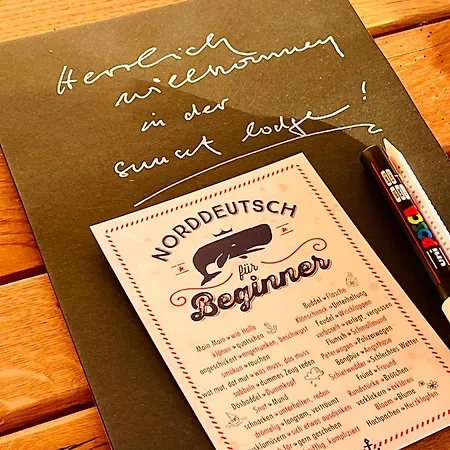 Herzlich
willkommen
in der
sunset lodge!
NORDDEUTSCH
für
Beginner
Moin Moin = wie Hallo
klönen = quatschen
angeschickert = angetrunken, beschwipst
smöken = rauchen
wat mut, dat mut = was muss, das muss
Sabbeln = dummes Zeug reden
Dösbaddel = Dummkopf
Snut = Mund
schnacken = unterhalten, reden
drömelig = langsam, verträumt
= sich etwas ausdenken
= gern geschehen
kompliziert
Buddel = Flasche
Klönschnack = Unterhaltung
Feudel = Wischlappen
verlegt, vergessen
Flumsch = Schmollmund
Peterwagen = Polizeiwagen
Bangbüx = Angsthase
Schietwetter = Schlechtes Wetter
Fründ = Freund
Rundstücke = Brötchen
verklickern = erklären
Bloom = Blume
Hachpochen = Herzklopfen
POSCA